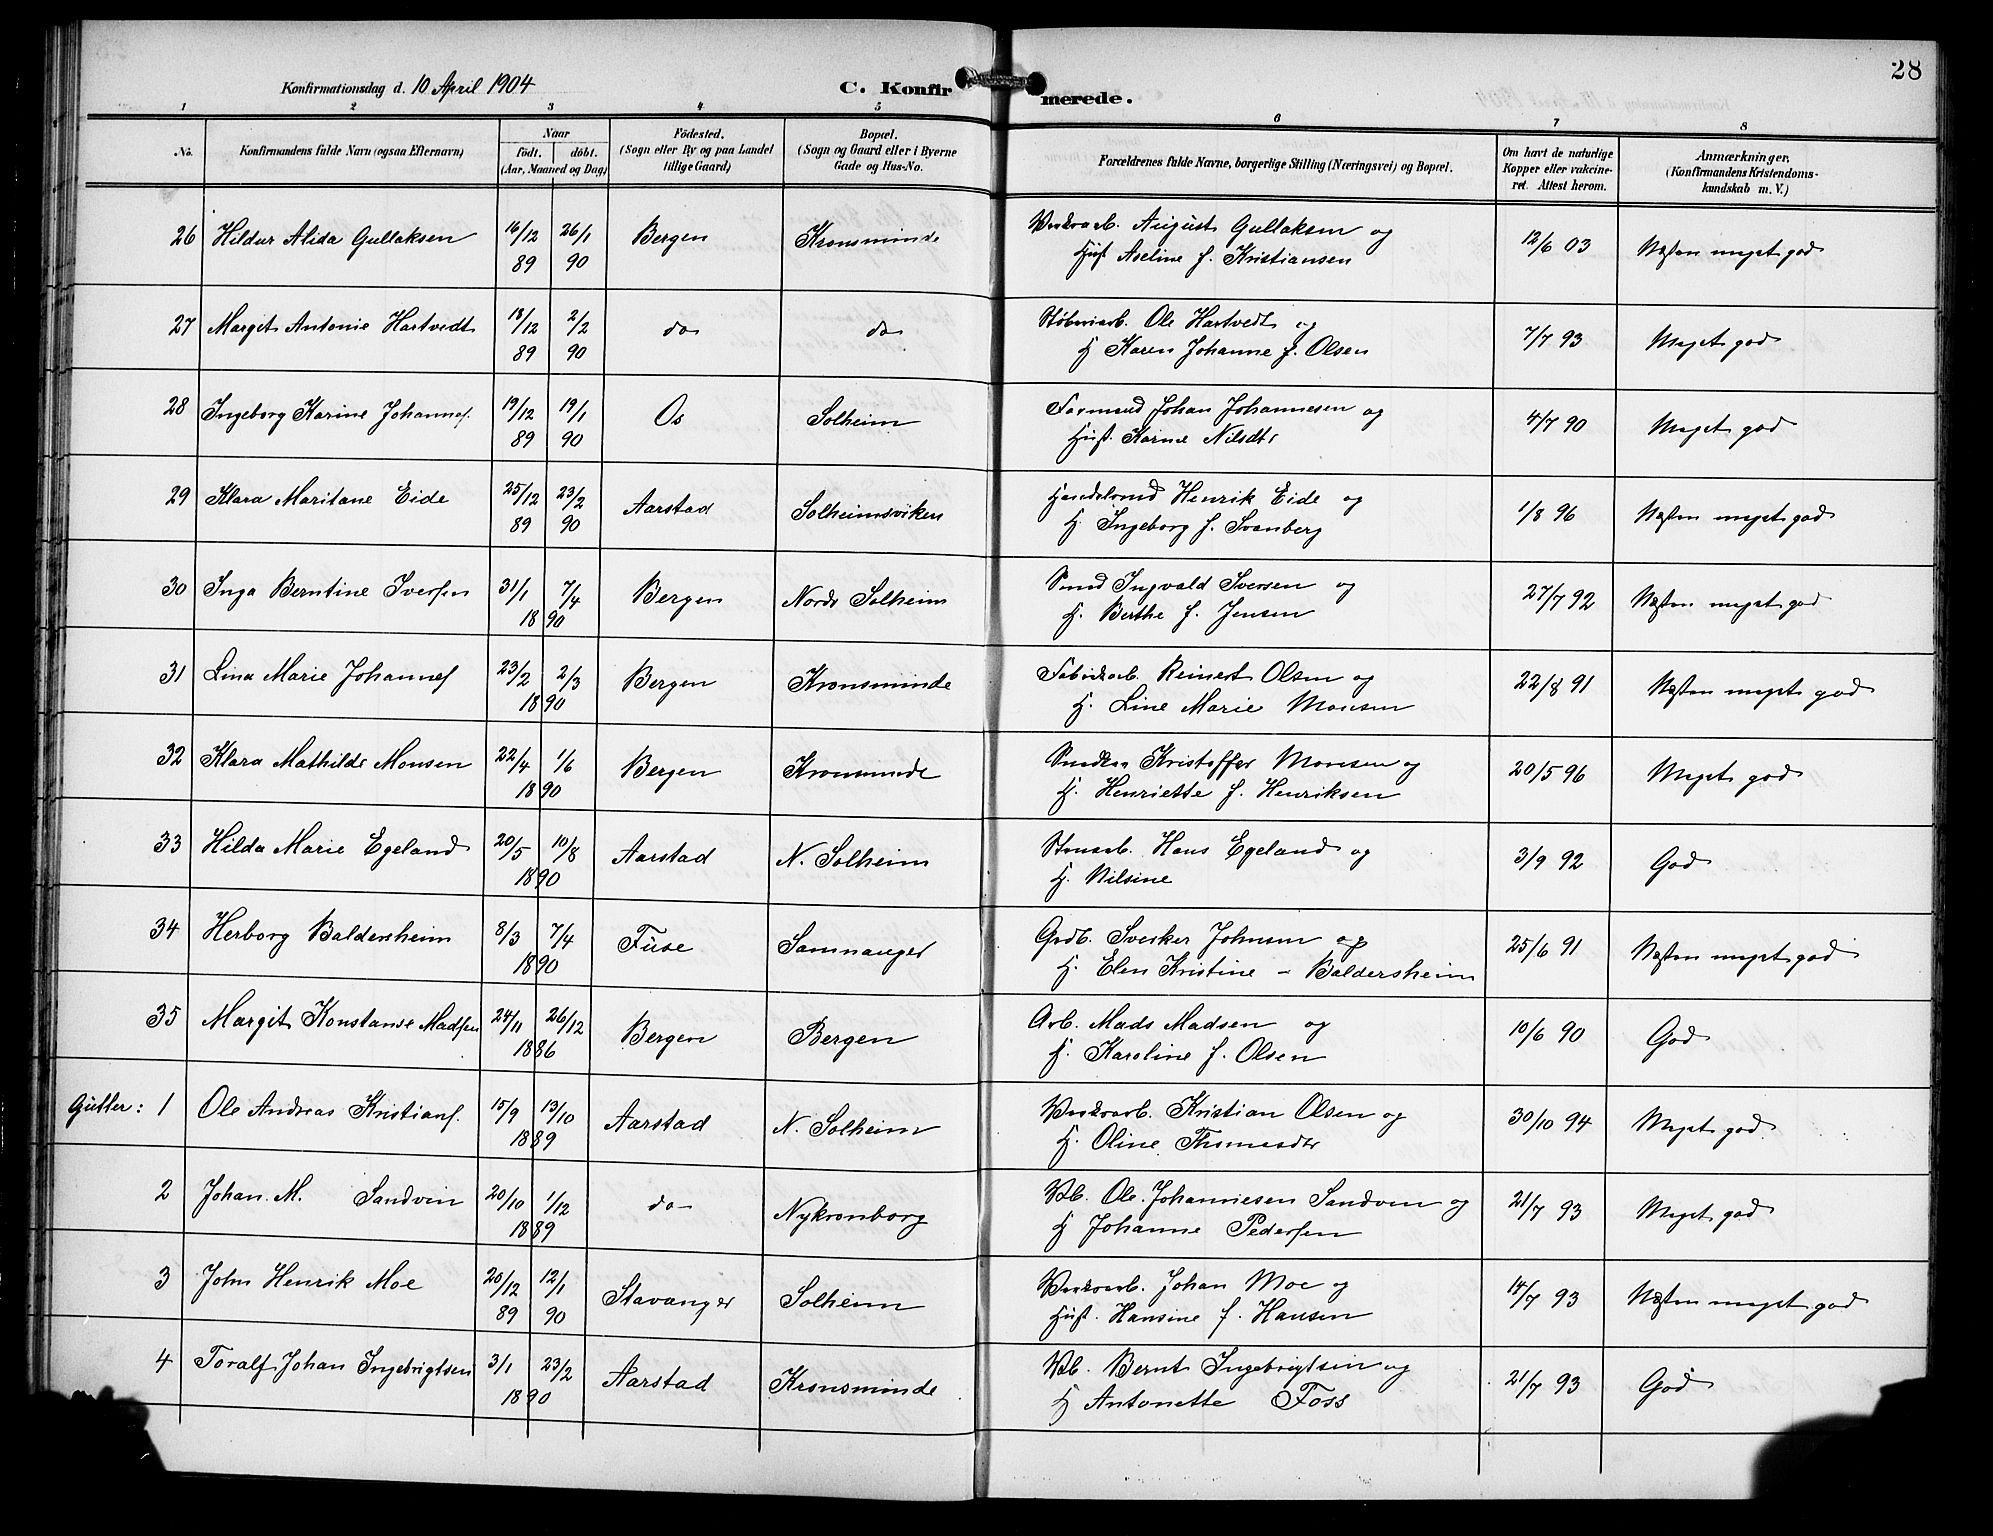 28
Konfirmationsdag d. 10 April 1904
C. Konfirmerede.
1 2 3 4 5 6 7 8
No.
Konfirmandens fulde Navn (ogsaa Efternavn)
Naar
født. døbt.
(Aar, Maaned og Dag)
Fødested.
(Sogn eller By og paa Landet
tillige Gaard)
Bopæl.
(Sogn og Gaard eller i Byerne
Gade og Hus-No.
Forældrenes fulde Navne, borgerlige Stilling (Næringsvei) og Bopæl.
Om havt de naturlige
Kopper eller vakcine-
ret. Attest herom.
Anmærkninger.
(Konfirmandens Kristendoms-
kundskab m. V.)
26 Hildur Alida Gullaksen 16/12 26/1 Bergen Kronsminde August Gullaksen og 12/6 03 Næsten meget god
89 90 Hust Aseline f. Kristiansen
27 Margit Antonie Hartvedt 18/12 2/2 do do Støberiarb. Ole Hartvedt og 7/7 93 Meget god
89 90 H Karen Johanne f. Olsen
28 Ingeborg Karine Johannes. 19/12 19/1 Os Solheim Formand Johan Johannesen og 4/7 90 Meget god
89 90 Hust. Karine Nilsdtr
29 Klara Maritane Eide 25/12 23/2 Aarstad Solheimsviken Henrik Eide og 1/8 96 Næsten meget god
89 90 H. Ingeborg f. Svanberg
30 Inga Berntine Iversen 31/1 7/4 Bergen Nordr Solheim Smed Ingvald Iversen og 27/7 92 Næsten meget god
1890 H. Berthe f. Jensen
31 Lina Marie Johannes 23/2 2/3 Bergen Kronsminde Reinert Olsen og 22/8 91 Næsten meget god
1890 H. Line Marie Monsen
32 Klara Mathilde Monsen 22/4 1/6 Bergen Kronsminde Kristoffer Monsen og 20/5 96 Meget god
1890 H. Henriette f. Henriksen
33 Hilda Marie Egeland 20/5 10/8 Aarstad N. Solheim Stenarb. Hans Egeland og 3/9 92 God
1890 H. Nilsine
34 Herborg Baldersheim 8/3 7/4 Fuse Samnanger Grdb. Sverker Johnsen og 25/6 91 Næsten meget god
1890 H. Elen Kristine - Baldersheim
35 Margit Konstanse Madsen 24/11 26/12 Bergen Bergen Arb. Mads Madsen og 10/6 90 God
1886 H. Karoline f. Olsen
Gutter: 1 Ole Andreas Kristians. 15/9 13/10 Aarstad N. Solheim Kristian Olsen og 30/10 94 Meget god
1889 H. Oline Thomasdtr
2 Johan. M. Sandvin 20/10 1/12 do Nykronborg Vb. Ole Johannesen Sandven og 21/7 93 Meget god
1889 H Johanne Pedersen
3 John Henrik Moe 20/12 12/1 Stavanger Solheim Johan Moe og 14/7 93 Næsten meget god
89 90 Hust. Hansine f. Hansen
4 Toralf Johan Ingebrigtsen 3/1 23/2 Aarstad Kronsminde Vb. Bernt Ingebrigtsen og 21/7 93 God
1890 H Antonette Foss